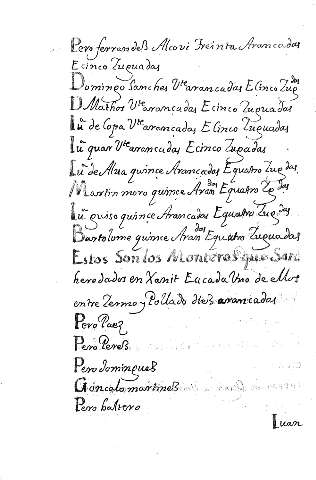 Pero ferrandeß Alcovi Treinta Arancadas
E cinco Zuguadas
Domingo Sanches Vte arancadas E Cinco Zugdas
D Mathos Vte arancadas E cinco Zuguadas
Iuº de Copa Vte arancadas E Cinco Zuguadas
Iuº quar Vte arancadas E cinco Zugadas
Iuº de Alua quince Arancadas E quatro Zugdas
Martin moro quince Arandos E quatro Zgdas
Iuº guiso quince Arancadas E quatro Zugdas
Bartolome quince Arandos E quatro Zuguadas
Estos Son los Monteros que Son
heredados en Xanit E a cada Uno de ellos
entre Termo y Pollado dieß arancadas
Pero Paeß
Pero Pereß
Pero domingueß
Gonçalo martineß
Pero baltero
Iuan